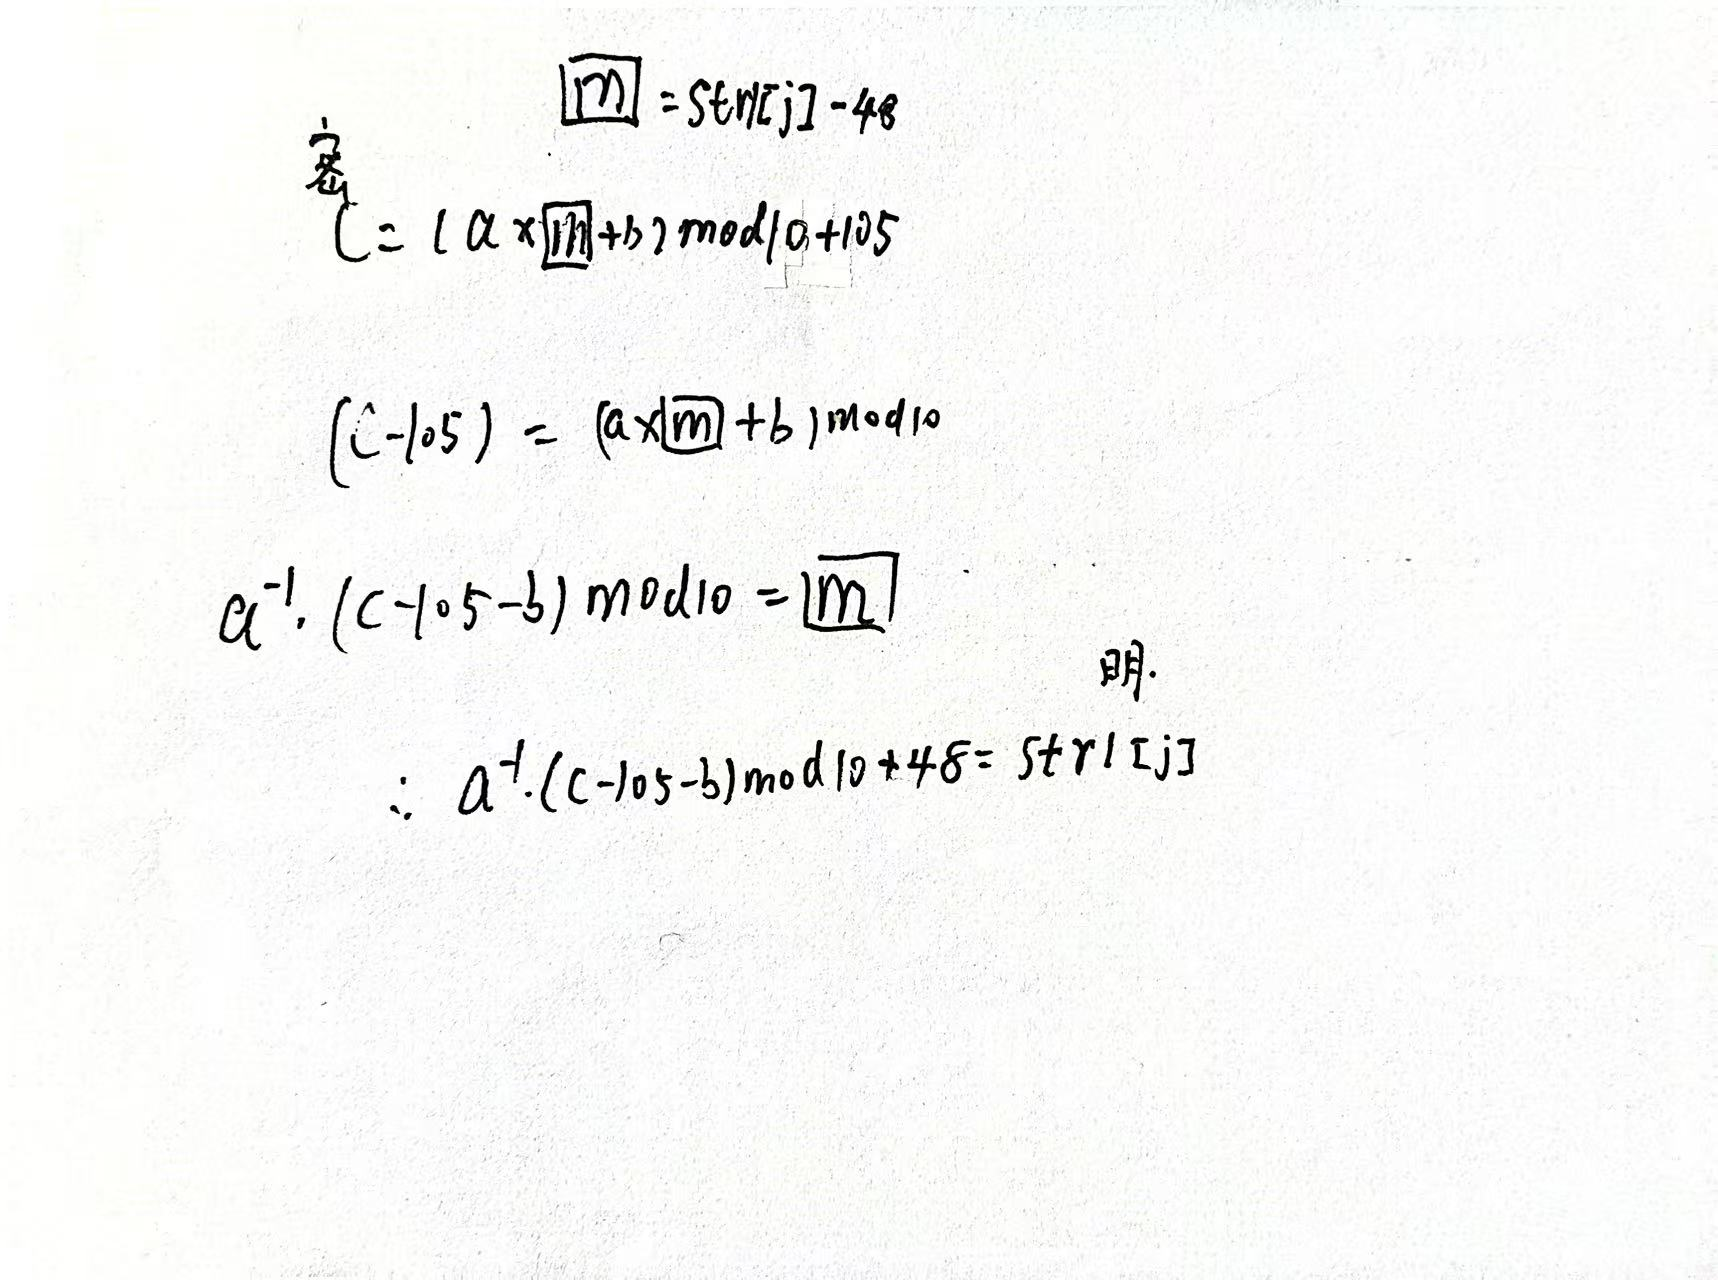 m = str1[j] - 48
密
C = (a × m + b) mod 10 + 105
(C - 105) = (a × m + b) mod 10
a⁻¹ · (C - 105 - b) mod 10 = m
明.
∴ a⁻¹ · (C - 105 - b) mod 10 + 48 = str1[j]